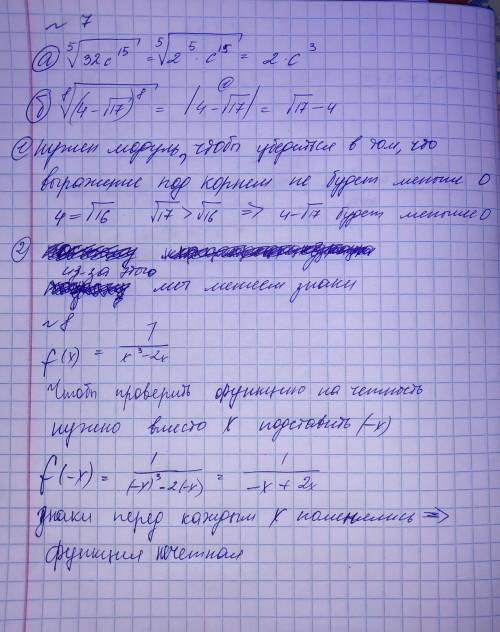 ~ 7
а) ⁵√32c¹⁵ = ⁵√2⁵ · c¹⁵ = 2 · c³
б) ⁸√(4-√17)⁸ = |4-√17| = √17 - 4
① Нужен модуль, чтобы убедиться в том, что
выражение под корнем не будет меньше 0
4 = √16 √17 > √16 => 4-√17 будет меньше 0
②
из-за этого
мы меняем знаки
~ 8
f(x) = 1/(x³-2x)
Чтобы проверить функцию на четность
нужно вместо x подставить (-x)
f(-x) = 1/((-x)³-2(-x)) = 1/(-x+2x)
Знаки перед каждым x поменялись =>
функция нечетная